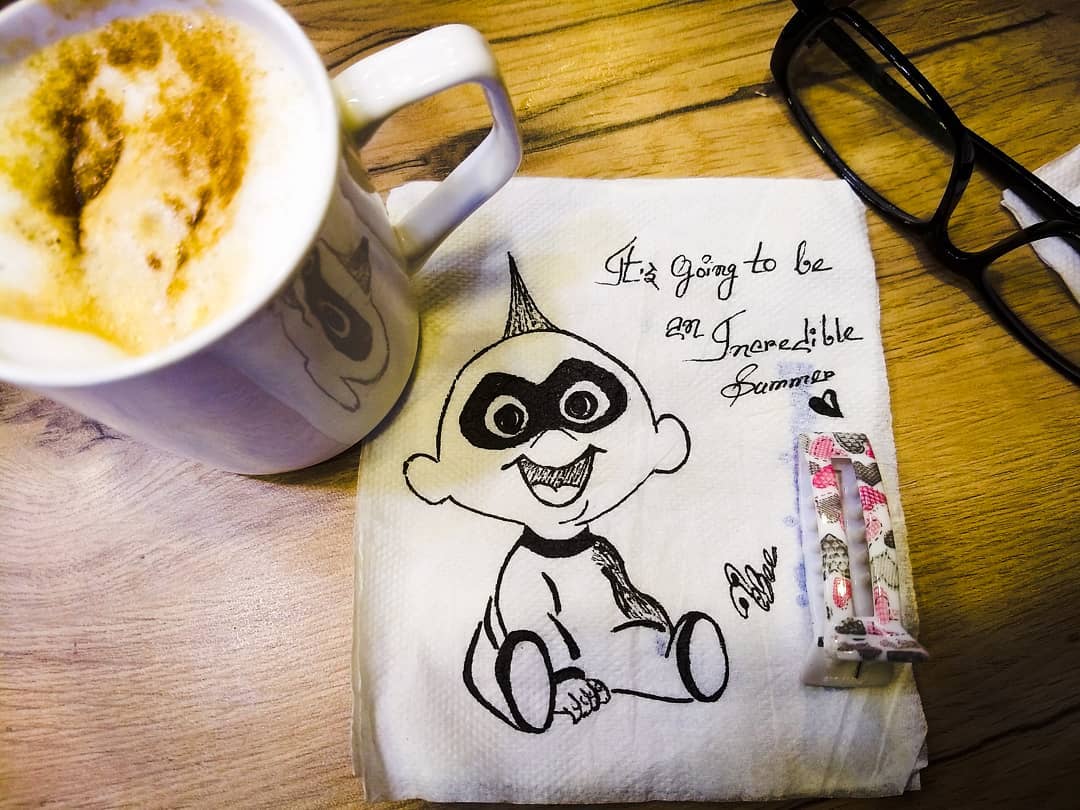 It's Going to be
an Incredible
Summer